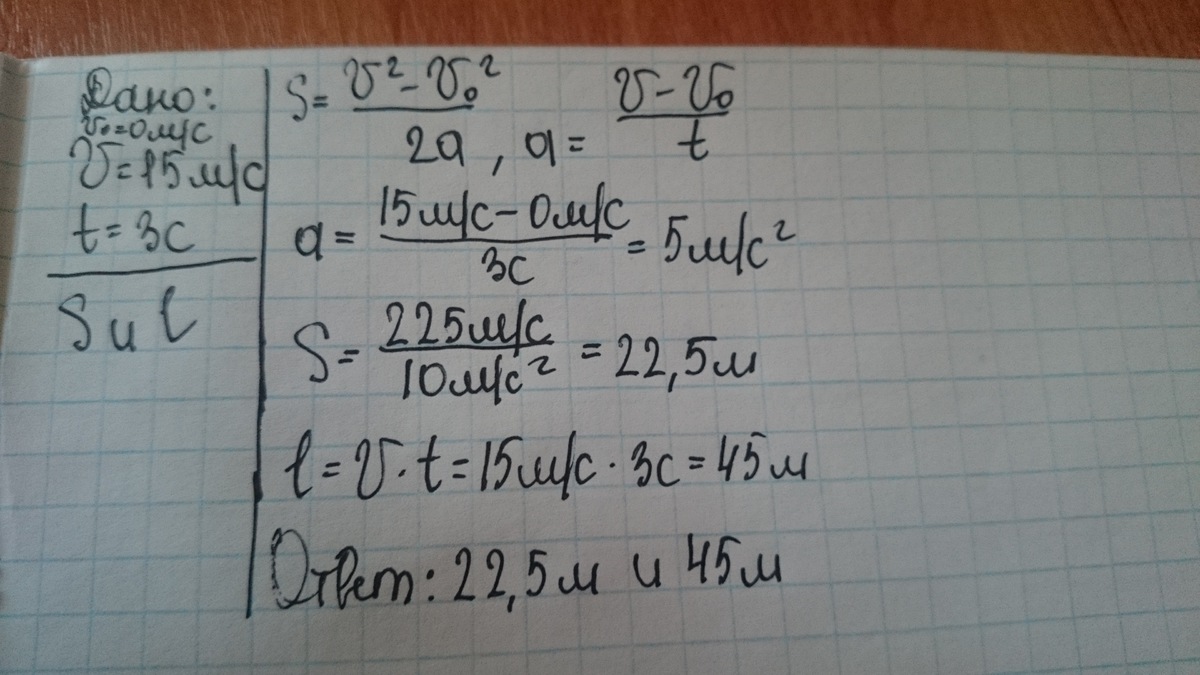 Дано:
v₀=0м/с
v=15м/с
t=3с
S и l
S = (v² - v₀²) / 2a , a = (v - v₀) / t
a = (15м/с - 0м/с) / 3с = 5м/с²
S = 225м/с / 10м/с² = 22,5м
l = v · t = 15м/с · 3с = 45м
Ответ: 22,5м и 45м